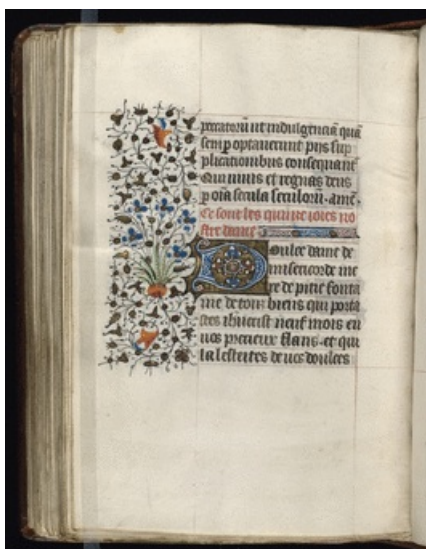 peccatorū ut indulgenciā quā
semp optauerunt piis sup
plicationibus consequanť
Qui uiuis et regnas deus
p oīa secula seculorū. amē.
Ce sont les quinze ioies no
stre dame
Doulce dame de
misericorde me
re de pitie fonta
ine de tous biens qui porta
stes ihūcrist neuf mois en
uos precieux flans. et qui
lalestites de uos doulces